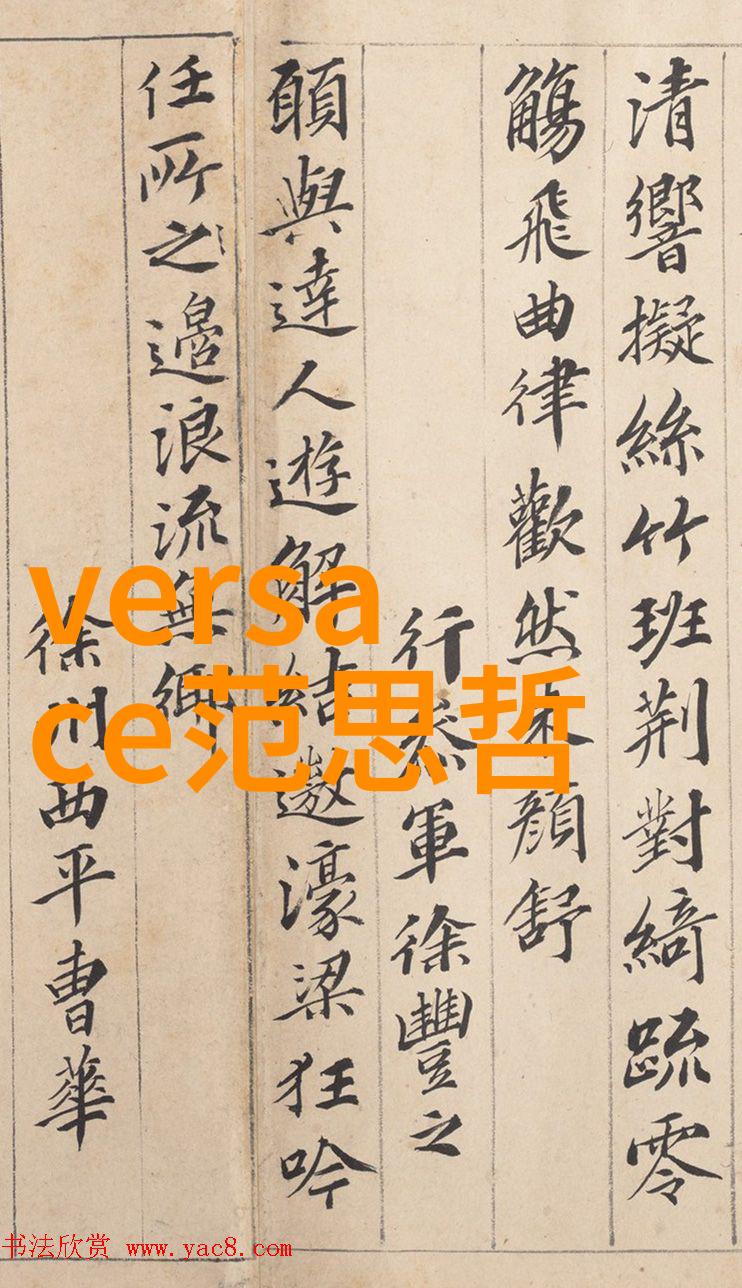 清響擬絲竹班荆對綺疏零
觴飛曲律歡然朱顏舒
行叅軍徐豐之
願與達人遊解結遨濠梁狂吟
任所之邉浪流無鄉
徐州西平曹華
versa
ce范思哲
书法欣赏 www.yac8.com